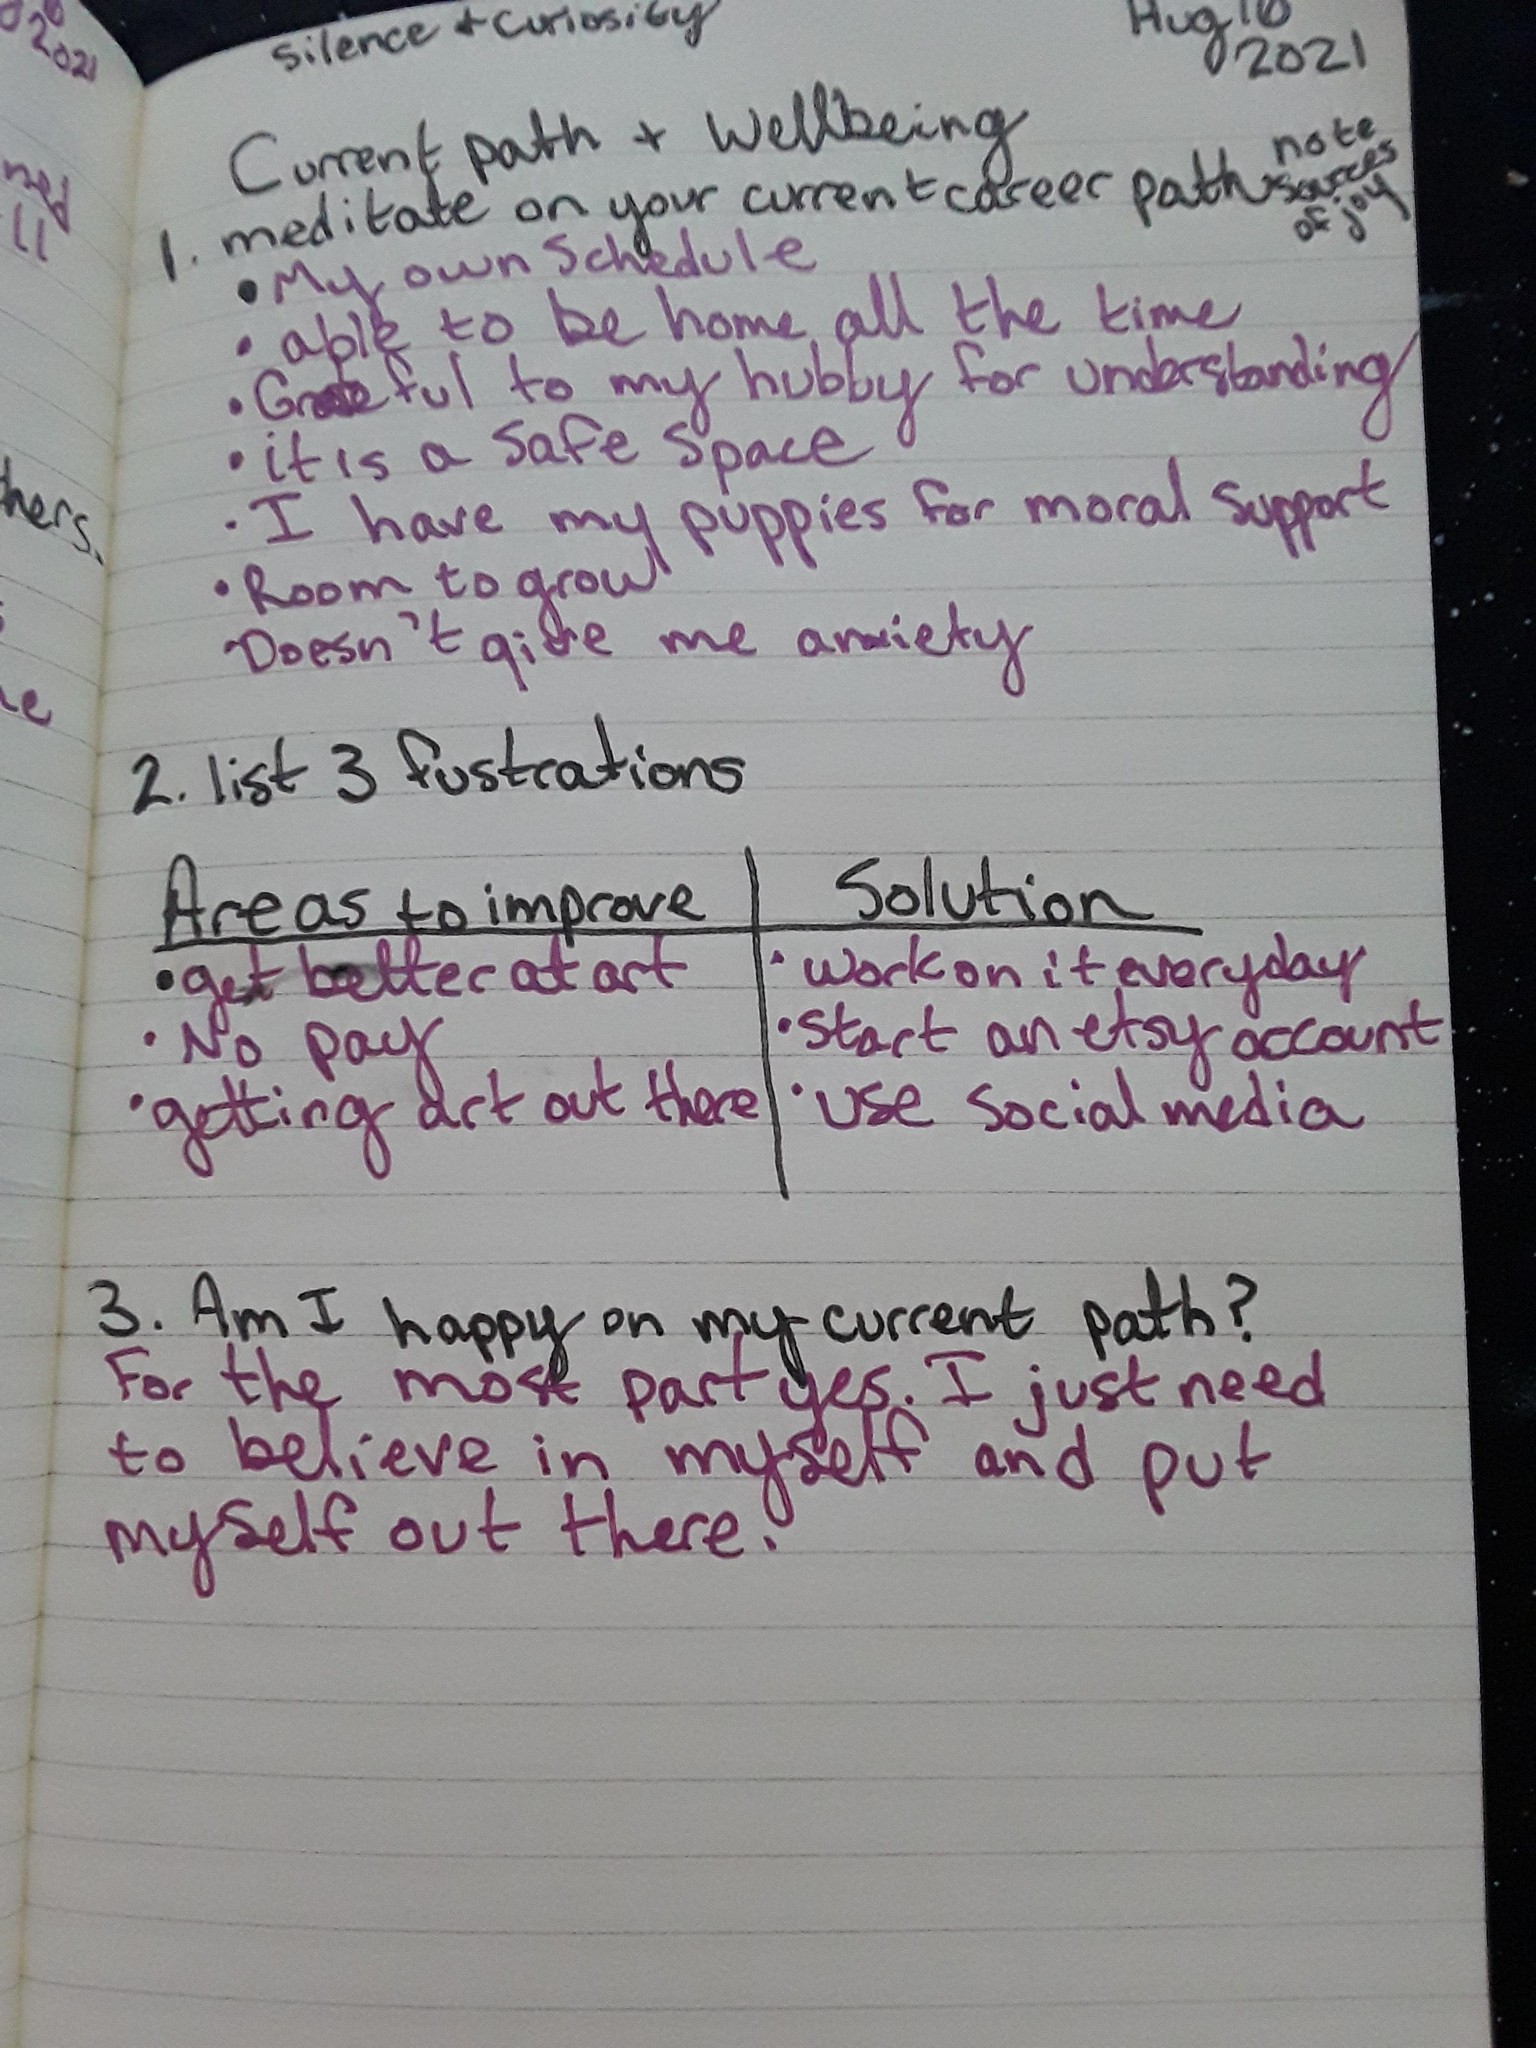 silence + curiosity
Aug 10
2021
Current path + Wellbeing
1. meditate on your current career path note
sources
of joy
• My own Schedule
• able to be home all the time
• Grateful to my hubby for understanding
• it is a safe space
• I have my puppies for moral support
• Room to grow
• Doesn't give me anxiety
2. list 3 fustrations
Areas to improve | Solution
• get better at art • work on it everyday
• No pay • start an etsy account
• getting art out there • use social media
3. Am I happy on my current path?
For the most part yes. I just need
to believe in myself and put
myself out there.
2021
11
hers.